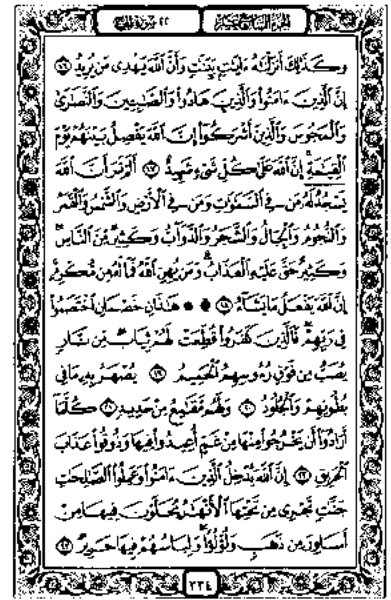 الجزء السابع عشر
٢٢ سورة الحج
وَكَذَٰلِكَ أَنزَلْنَٰهُ ءَايَٰتٍۭ بَيِّنَٰتٍ وَأَنَّ ٱللَّهَ يَهْدِى مَن يُرِيدُ ١٦
إِنَّ ٱلَّذِينَ ءَامَنُوا۟ وَٱلَّذِينَ هَادُوا۟ وَٱلصَّٰبِـِٔينَ وَٱلنَّصَٰرَىٰ
وَٱلْمَجُوسَ وَٱلَّذِينَ أَشْرَكُوٓا۟ إِنَّ ٱللَّهَ يَفْصِلُ بَيْنَهُمْ يَوْمَ
ٱلْقِيَٰمَةِ إِنَّ ٱللَّهَ عَلَىٰ كُلِّ شَىْءٍ شَهِيدٌ ١٧ أَلَمْ تَرَ أَنَّ ٱللَّهَ
يَسْجُدُ لَهُۥ مَن فِى ٱلسَّمَٰوَٰتِ وَمَن فِى ٱلْأَرْضِ وَٱلشَّمْسُ وَٱلْقَمَرُ
وَٱلنُّجُومُ وَٱلْجِبَالُ وَٱلشَّجَرُ وَٱلدَّوَآبُّ وَكَثِيرٌ مِّنَ ٱلنَّاسِ
وَكَثِيرٌ حَقَّ عَلَيْهِ ٱلْعَذَابُ وَمَن يُهِنِ ٱللَّهُ فَمَا لَهُۥ مِن مُّكْرِمٍ
إِنَّ ٱللَّهَ يَفْعَلُ مَا يَشَآءُ ۩ ١٨ ۞ هَٰذَانِ خَصْمَانِ ٱخْتَصَمُوا۟
فِى رَبِّهِمْ فَٱلَّذِينَ كَفَرُوا۟ قُطِّعَتْ لَهُمْ ثِيَابٌ مِّن نَّارٍ
يُصَبُّ مِن فَوْقِ رُءُوسِهِمُ ٱلْحَمِيمُ ١٩ يُصْهَرُ بِهِۦ مَا فِى
بُطُونِهِمْ وَٱلْجُلُودُ ٢٠ وَلَهُم مَّقَٰمِعُ مِنْ حَدِيدٍ ٢١ كُلَّمَآ
أَرَادُوٓا۟ أَن يَخْرُجُوا۟ مِنْهَا مِنْ غَمٍّ أُعِيدُوا۟ فِيهَا وَذُوقُوا۟ عَذَابَ
ٱلْحَرِيقِ ٢٢ إِنَّ ٱللَّهَ يُدْخِلُ ٱلَّذِينَ ءَامَنُوا۟ وَعَمِلُوا۟ ٱلصَّٰلِحَٰتِ
جَنَّٰتٍ تَجْرِى مِن تَحْتِهَا ٱلْأَنْهَٰرُ يُحَلَّوْنَ فِيهَا مِنْ
أَسَاوِرَ مِن ذَهَبٍ وَلُؤْلُؤًا وَلِبَاسُهُمْ فِيهَا حَرِيرٌ ٢٣
٣٣٤